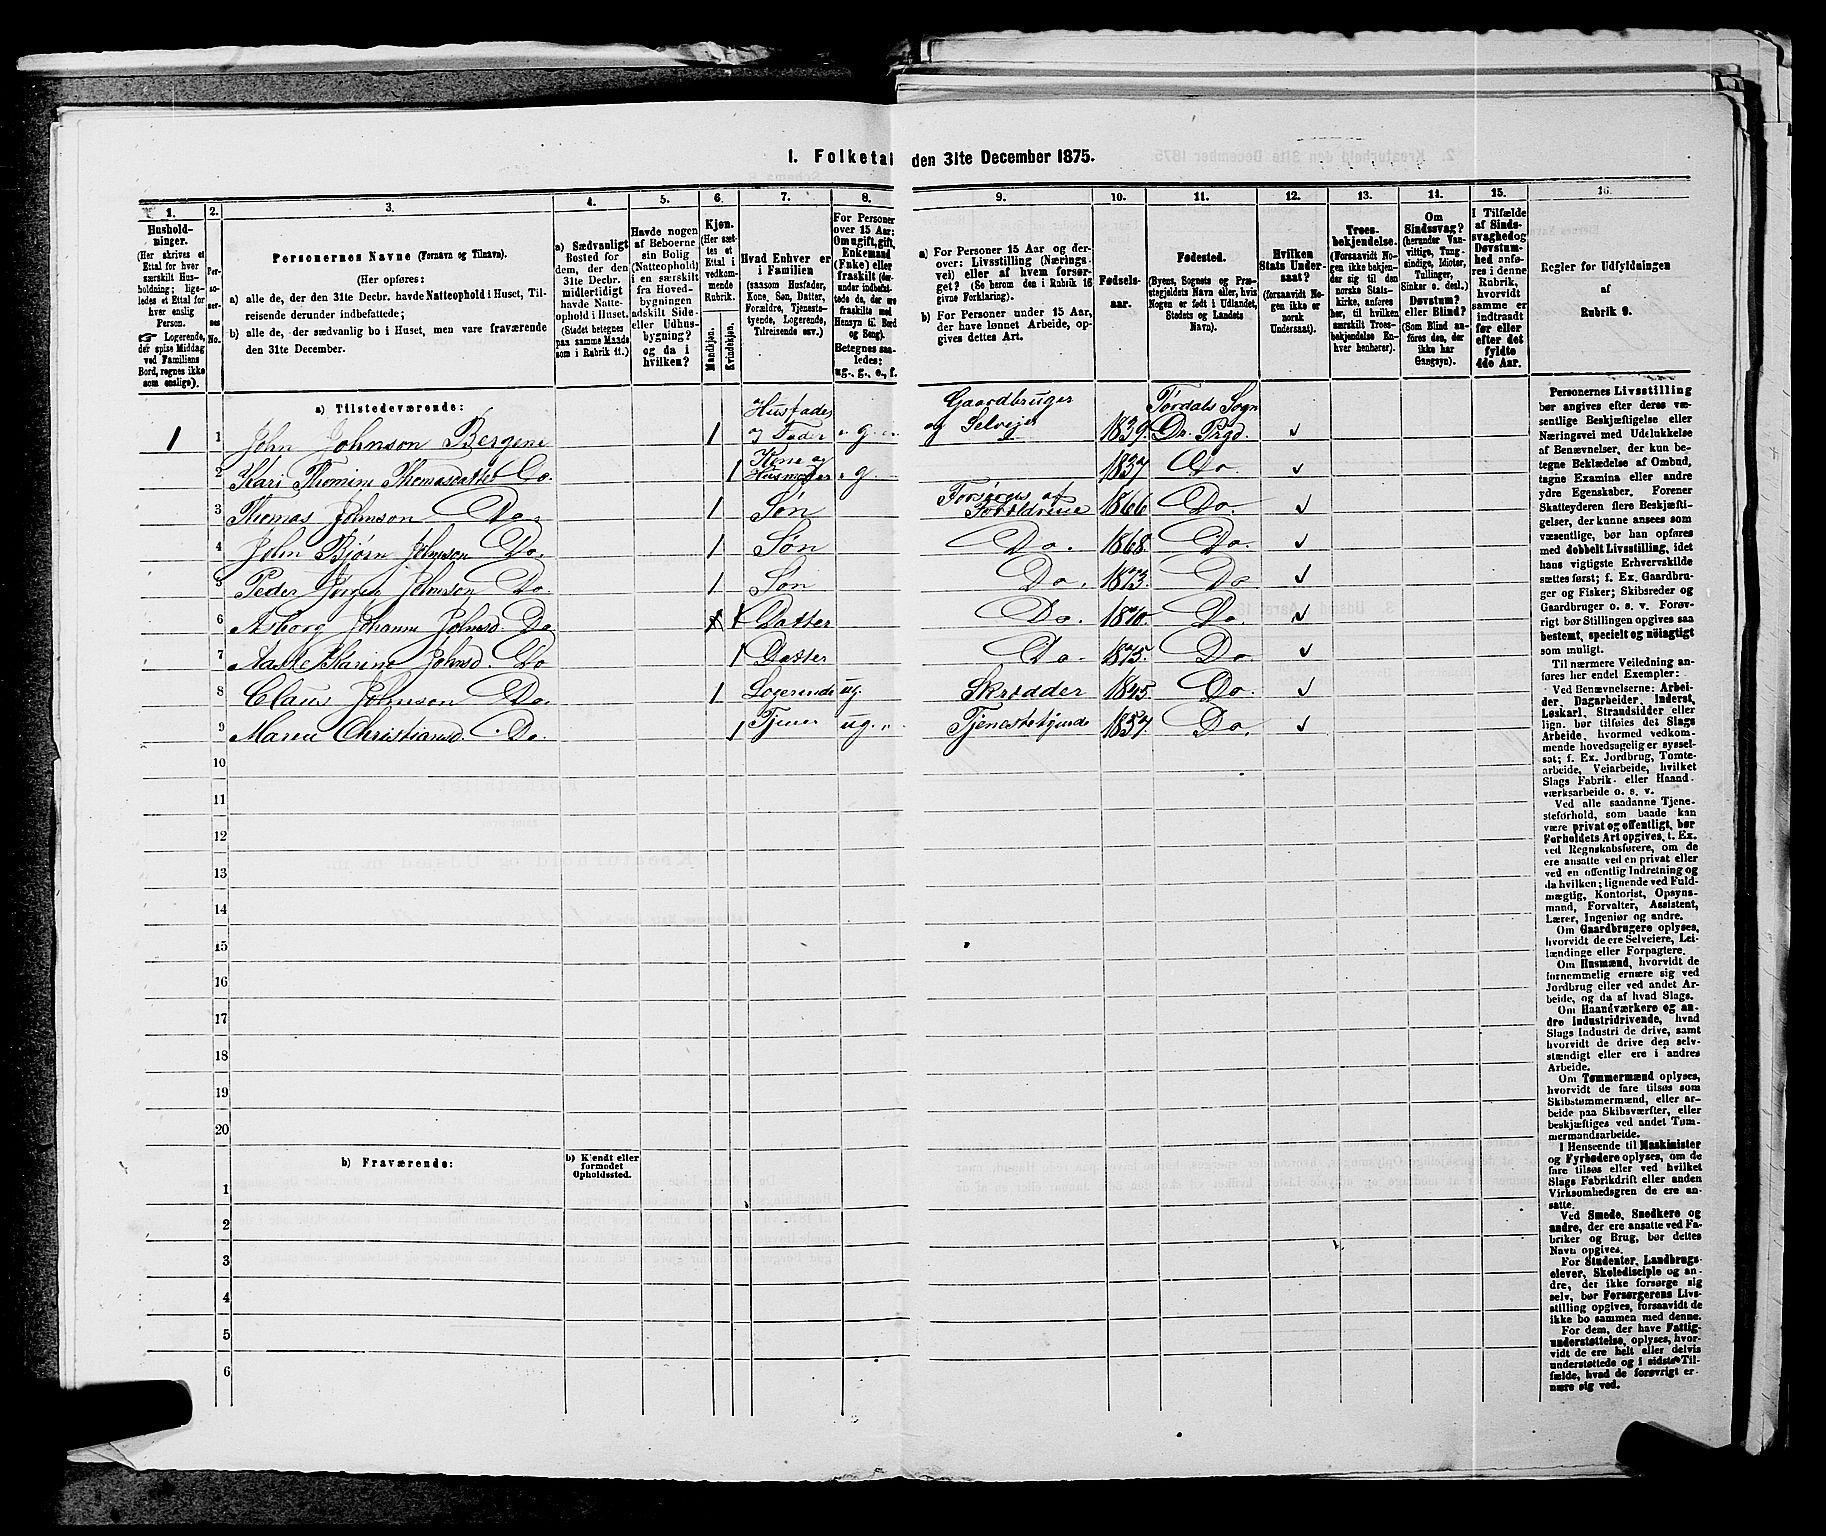 1. Folketal den 31te December 1875.
1. 2. 3. 4. 5. 6. 7. 8. 9. 10. 11. 12. 13. 14. 15. 16.
Husholdninger.
(Her skrives et Ettal for hver særskilt Husholdning; ligeledes et Ettal for hver enslig Person.
☞ Logerende, der spise Middag ved Familiens Bord, regnes ikke som enslige).
Personernes No.
Personernes Navne (Fornavn og Tilnavn).
(Her opføres:
a) alle de, der den 31te Decbr. havde Natteophold i Huset, Tilreisende derunder indbefattede;
b) alle de, der sædvanlig bo i Huset, men vare fraværende den 31te December.
a) Sædvanligt Bosted for dem, der den 31te Decbr. midlertidigt havde Natteophold i Huset.
(Stedet betegnes paa samme Maade som i Rubrik 11.)
Havde nogen af Beboerne sin Bolig (Natteophold) i en særskilt fra Hovedbygningen adskilt Side- eller Udhusbygning? og da i hvilken?
Kjøn.
(Her sættes et Ettal i vedkommende Rubrik.
Mandkjøn.
Kvindekjøn.
Hvad Enhver er i Familien
(saasom Husfader, Kone, Søn, Datter, Forældre, Tjenestetyende, Logerende, Tilreisende osv.)
For Personer over 15 Aar:
Om ugift, gift, Enkemand (Enke) eller fraskilt
Betegnes saaledes:
ug., g., e., f.
a) For Personer 15 Aar og derover: Livsstilling (Næringsvei) eller af hvem forsørget? (Se herom den i Rubrik 16 givne Forklaring).
b) For Personer under 15 Aar, der have lønnet Arbeide, opgives dettes Art.
Fødselsaar.
Fødested.
(Byens, Sognets og Præstegjeldets Navn eller, hvis Nogen er født i Udlandet, Stedets og Landets Navn).
Hvilken Stats Undersaat?
(forsaavidt Nogen ikke er norsk Undersaat).
Troesbekjendelse.
(Forsaavidt Nogen ikke bekjender sig til den norske Statskirke, anføres her, til hvilken særskilt Troesbekjendelse Enhver henhører).
Om Sindssvag?
(herunder Vanvittige, Tungsindige, Idioter, Tullinger, Sinker o. desl.)
Døvstum? eller Blind?
(Som Blind anføres den, der ikke har Gangsyn).
I Tilfælde af Sindssvaghed og Døvstumhed anføres i denne Rubrik, hvorvidt samme er indtraadt før eller efter det fyldte 4de Aar.
Regler for Udfyldningen
af
Rubrik 9.
a) Tilstedeværende:
1 1 John Johnson Bergene 1 Husfader og Fader g. Gaardbruger og Selveier 1839. Tørdals Sogn Dr. Prgd.
2 Kari Thomine Thomasdatter Do. 1 Kone og Husmoder g 1837 Do.
3 Thomas Johnson Do. 1 Søn Forsørges af Forældrene 1866 Do.
4 John Bjørn Johnson Do. 1 Søn Do. 1868. Do.
5 Peder Jørgen Johnson Do. 1 Søn Do. 1873. Do
6 Asborg Johanne Johnsd. Do 1 Datter Do. 1870. Do.
7 Aaste Karine Johnsd. Do 1 Datter Do. 1875. Do.
8 Claus Johnson Do. 1 Logerende ug. Skrædder 1845. Do.
9 Maren Christiansd. Do. 1 Tjener ug. Tjenestetyende 1857. Do.
10
11
12
13
14
15
16
17
18
19
20
b) Fraværende:
b) Kjendt eller formodet Opholdssted.
1
2
3
4
5
6
Personernes Livsstilling
bør angives efter deres væ-
sentlige Beskjæftigelse eller
Næringsvei med Udelukkelse
af Benævnelser, der kun be-
tegne Beklædelse af Ombud,
tagne Examina eller andre
ydre Egenskaber. Forener
Skatteyderen flere Beskjæfti-
gelser, der kunne ansees som
væsentlige, bør han opføres
med dobbelt Livsstilling, idet
hans vigtigste Erhvervskilde
sættes først; f. Ex. Gaardbru-
ger og Fisker; Skibsreder og
Gaardbruger o. s. v. Forøv-
rigt bør Stillingen opgives saa
bestemt, specielt og nøiagtigt
som muligt.
Til nærmere Veiledning an-
føres her endel Exempler:
Ved Benævnelserne: Arbei-
der, Dagarbeider, Inderst,
Løskarl, Strandsidder eller
lign. bør tilføies det Slags
Arbeide, hvormed vedkom-
mende hovedsagelig er syssel-
sat; f. Ex. Jordbrug, Tomte-
arbeide, Veiarbeide, hvilket
Slags Fabrik- eller Haand-
værksarbeide o. s. v.
Ved alle saadanne Tjene-
steforhold, som baade kan
være privat og offentligt, bør
Forholdets Art opgives, t. Ex.
ved Regnskabsførere, om de
ere ansatte ved en privat eller
ved en offentlig Indretning og
da hvilken; lignende ved Fuld-
mægtig, Kontorist, Opsyns-
mand, Forvalter, Assistent,
Lærer, Ingeniør og andre.
Om Gaardbrugere oplyses,
hvorvidt de ere Selveiere, Lei-
lændinge eller Forpagtere.
Om Husmænd, hvorvidt de
fornemmelig ernære sig ved
Jordbrug eller ved andet Ar-
beide, og da af hvad Slags.
Om Haandværkere og an-
dre Industridrivende, hvad
Slags Industri de drive, samt
hvorvidt de drive den selv-
stændigt eller ere i andres
Arbeide.
Om Tømmermænd oplyses,
hvorvidt de fare tilsøs som
Skibstømmermænd, eller ar-
beide paa Skibsværfter, eller
beskjæftiges ved andet Tøm-
mermandsarbeide.
I Henseende til Maskinister
og Fyrbødere oplyses, om de
fare tilsøs eller ved hvilket
Slags Fabrikdrift eller anden
Virksomhedsgren de ere an-
satte.
Ved Smede, Snedkere og
andre, der ere ansatte ved Fa-
briker og Brug, bør dettes
Navn opgives.
For Studenter, Landbrugs-
elever, Skoledisciple og an-
dre, der ikke forsørge sig
selv, bør Forsørgerens Livs-
stilling opgives, forsaavidt de
ikke bo sammen med denne.
For dem, der have Fattig-
understøttelse, oplyses, hvor-
vidt de ere helt eller delvis
understøttede og i sidste Til-
fælde, hvad de forøvrigt er-
nære sig ved.